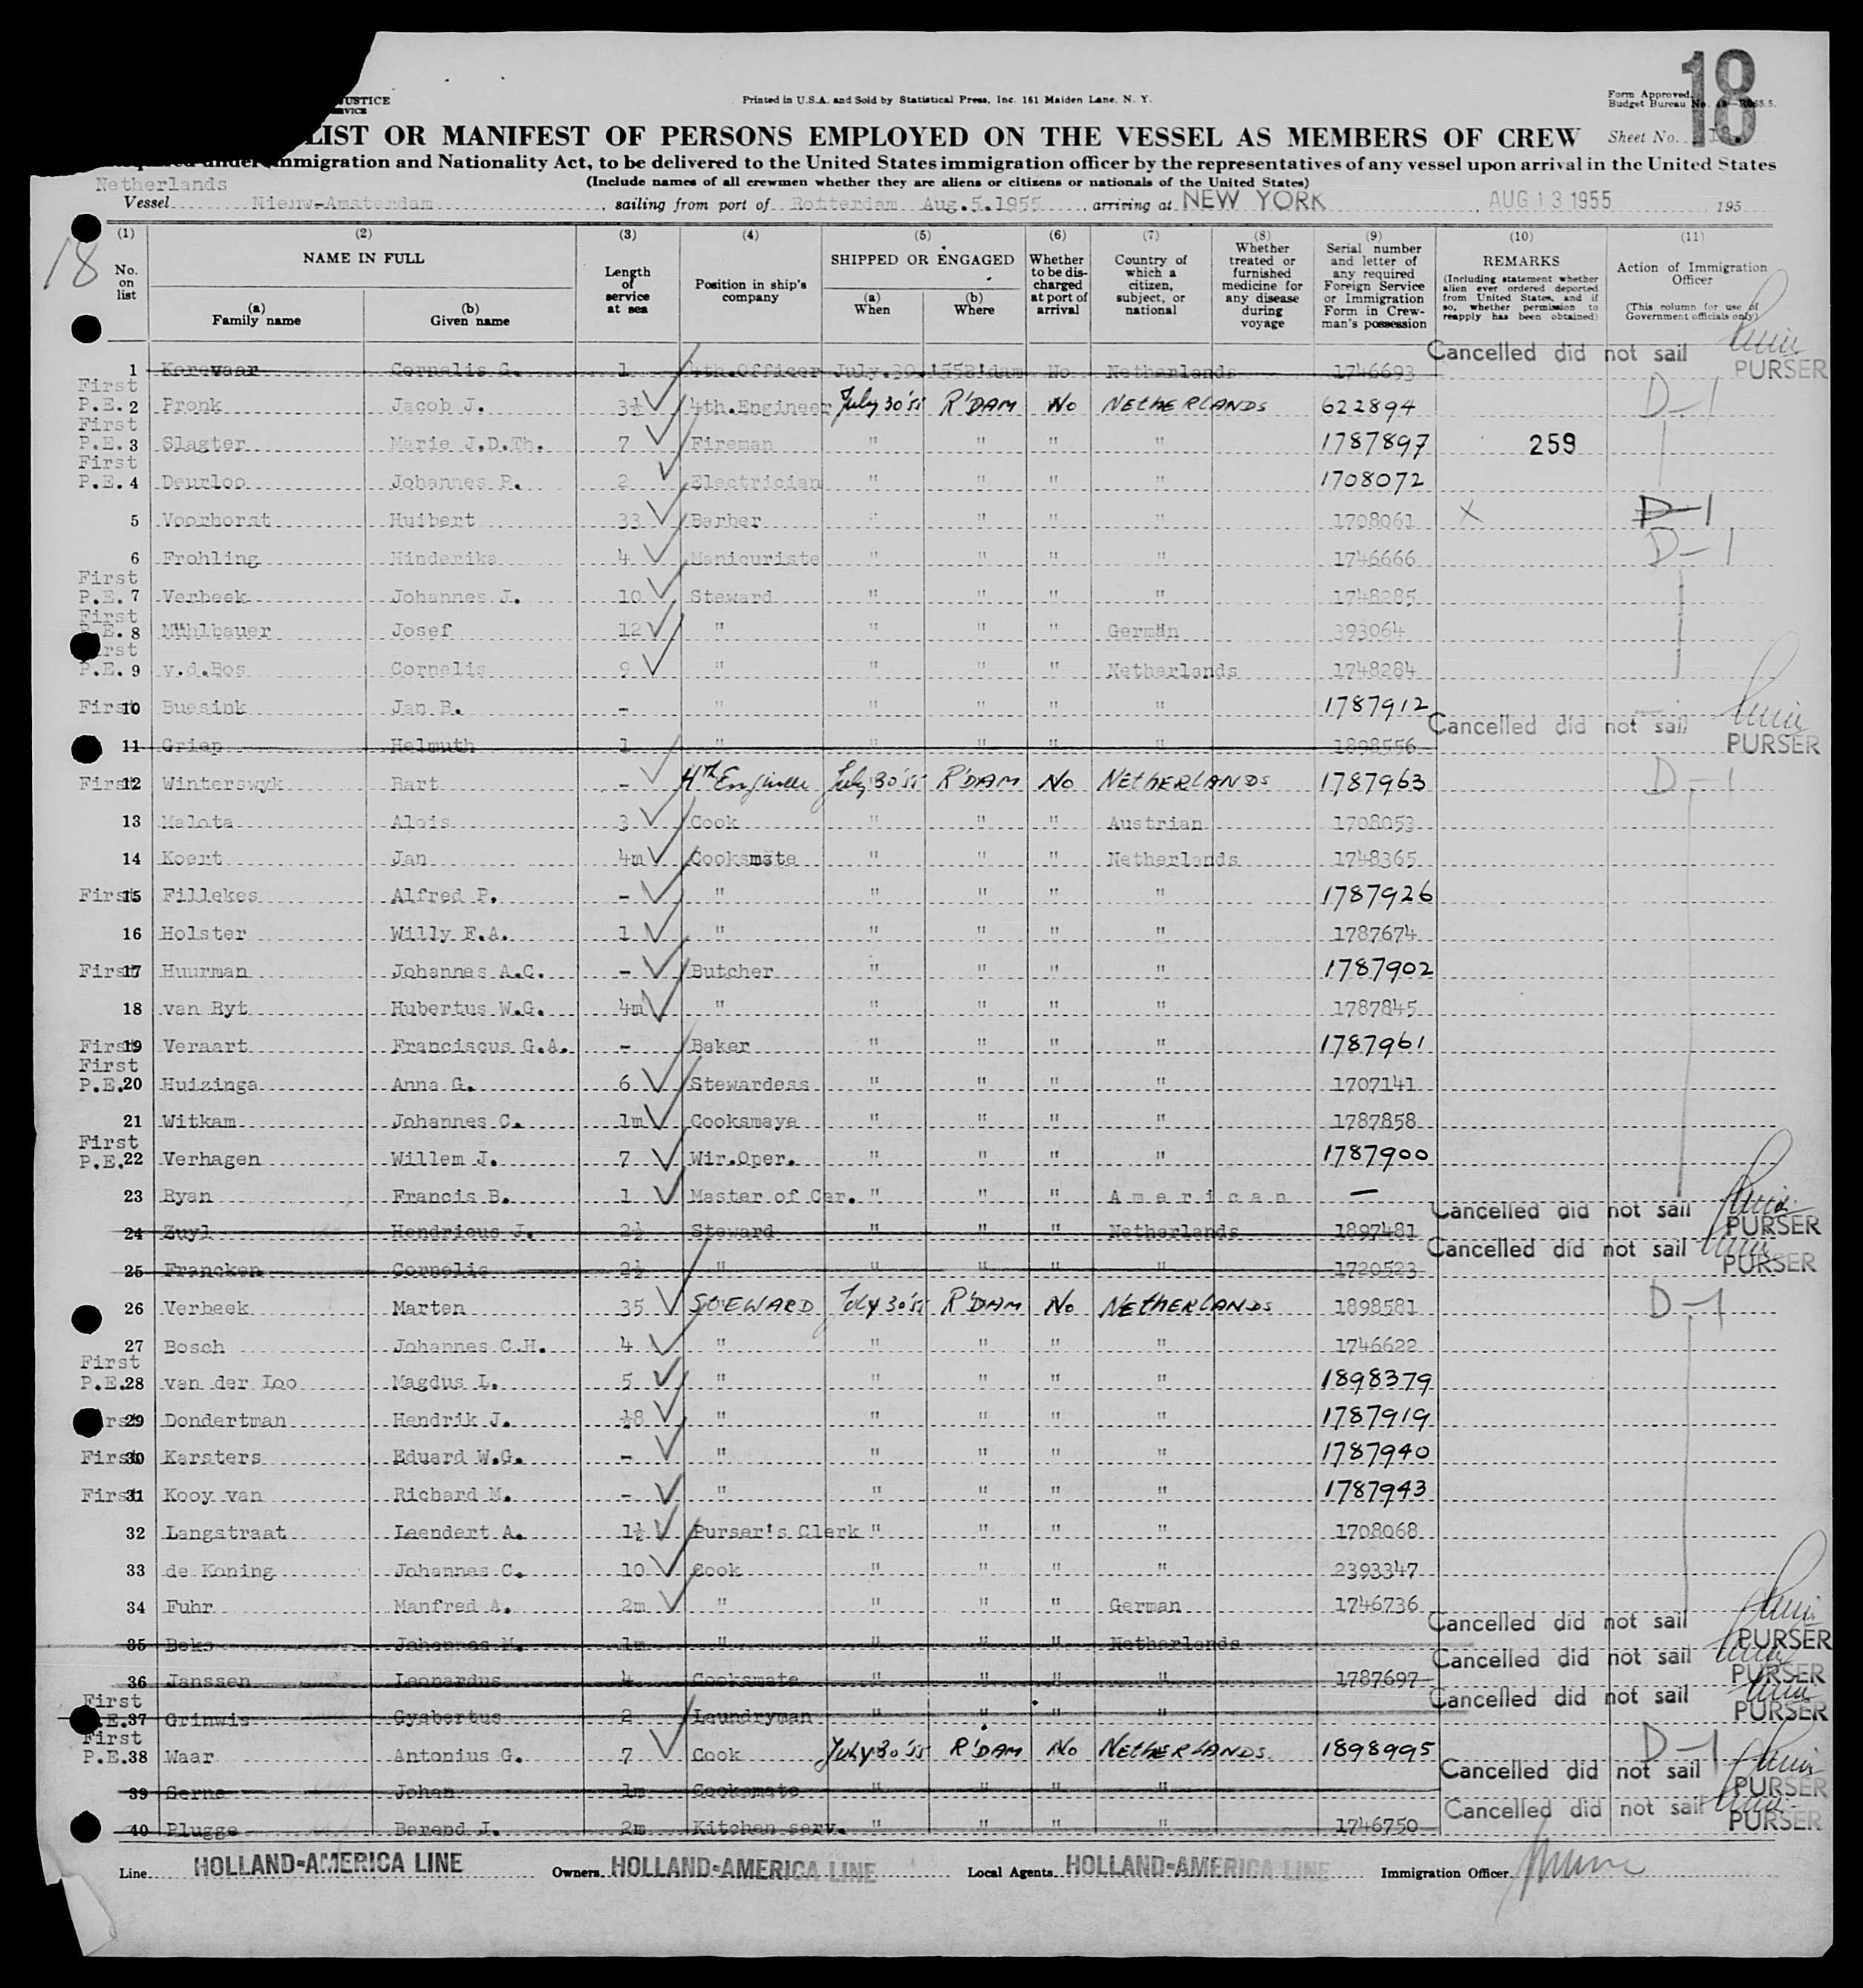 18
JUSTICE
SERVICE
Printed in U.S.A. and Sold by Statistical Press, Inc. 161 Maiden Lane, N. Y.
Form Approved.
Budget Bureau No.
LIST OR MANIFEST OF PERSONS EMPLOYED ON THE VESSEL AS MEMBERS OF CREW
Sheet No.
under Immigration and Nationality Act, to be delivered to the United States immigration officer by the representatives of any vessel upon arrival in the United States
Netherlands
(Include names of all crewmen whether they are aliens or citizens or nationals of the United States)
Vessel Nieuw-Amsterdam, sailing from port of Rotterdam Aug.5.1955, arriving at NEW YORK, AUG 13 1955, 195
18
(1) (2) (3) (4) (5) (6) (7) (8) (9) (10) (11)
No. on list
NAME IN FULL
(a) Family name
(b) Given name
Length of service at sea
Position in ship's company
SHIPPED OR ENGAGED
(a) When
(b) Where
Whether to be discharged at port of arrival
Country of which a citizen, subject, or national
Whether treated or furnished medicine for any disease during voyage
Serial number and letter of any required Foreign Service or Immigration Form in Crewman's possession
REMARKS
(Including statement whether alien ever ordered deported from United States, and if so, whether permission to reapply has been obtained)
Action of Immigration Officer
(This column for use of Government officials only)
1 Korevaar Cornelis G. 1 4th.Officer July.30.'55R'dam No Netherlands 1746693 Cancelled did not sail PURSER
First P.E. 2 Pronk Jacob J. 3½ 4th.Engineer July 30'55 R'DAM No NETHERLANDS 622894 D-1
First P.E. 3 Slagter Marie J.D.Th. 7 Fireman " " " " 1787897 259
First P.E. 4 Deurloo Johannes P. 2 Electrician " " " " 1708072
5 Voorhorst Huibert 33 Barber " " " " 1708061 X D-1
6 Frohling Hinderika 4 Manicuriste " " " " 1746666 D-1
First P.E. 7 Verbeek Johannes J. 10 Steward " " " " 1748285
First P.E. 8 Mühlbauer Josef 12 " " " " German 393064
First P.E. 9 v.d.Bos Cornelis 9 " " " " Netherlands 1748284
First 10 Buesink Jan B. - " " " " " 1787912
11 Griep Helmuth 1 " " " " " 1898556 Cancelled did not sail PURSER
First 12 Winterswyk Bart - 4th Engineer July 30'55 R'DAM No NETHERLANDS 1787963 D-1
13 Malota Alois 3 Cook " " " Austrian 1708053
14 Koert Jan 4m Cooksmate " " " Netherlands 1748365
First 15 Fillekes Alfred P. - " " " " " 1787926
16 Holster Willy F.A. 1 " " " " " 1787674
First 17 Huurman Johannes A.C. - Butcher " " " " 1787902
18 van Ryt Hubertus W.G. 4m " " " " " 1787845
First 19 Veraart Franciscus G.A. - Baker " " " " 1787961
First P.E. 20 Huizinga Anna G. 6 Stewardess " " " " 1707141
21 Witkam Johannes C. 1m Cooksmaye " " " " 1787858
First P.E. 22 Verhagen Willem J. 7 Wir.Oper. " " " " 1787900
23 Ryan Francis B. 1 Master of Cer. " " " American —
24 Zuyl Hendricus J. 2½ Steward " " " Netherlands 1897481 Cancelled did not sail PURSER
25 Francken Cornelis 2½ " " " " " 1720523 Cancelled did not sail PURSER
26 Verbeek Marten 35 STEWARD July 30'55 R'DAM No NETHERLANDS 1898581 D-1
27 Bosch Johannes C.H. 4 " " " " " 1746622
First P.E. 28 van der Loo Magdus L. 5 " " " " " 1898379
First 29 Dondertman Hendrik J. ½8 " " " " " 1787919
First 30 Karsters Eduard W.G. - " " " " " 1787940
First 31 Kooy van Richard M. - " " " " " 1787943
32 Langstraat Leendert A. 1½ Purser's Clerk " " " " 1708068
33 de Koning Johannes C. 10 Cook " " " " 2393347
34 Fuhr Manfred A. 2m " " " " German 1746736
35 Boks Johannes M. 1m " " " " Netherlands Cancelled did not sail PURSER
36 Janssen Leonardus 4 Cooksmate " " " " 1787697 Cancelled did not sail PURSER
First P.E. 37 Grinwis Gysbertus 2 Laundryman " " " " Cancelled did not sail PURSER
First P.E. 38 Waar Antonius G. 7 Cook July 30'55 R'DAM No NETHERLANDS 1898995 D-1
39 Serne Johan 1m Cooksmate " " " Cancelled did not sail PURSER
40 Plugge Berend J. 2m Kitchen serv. " " " " 1746750 Cancelled did not sail PURSER
Line HOLLAND-AMERICA LINE Owners HOLLAND-AMERICA LINE Local Agents HOLLAND-AMERICA LINE Immigration Officer